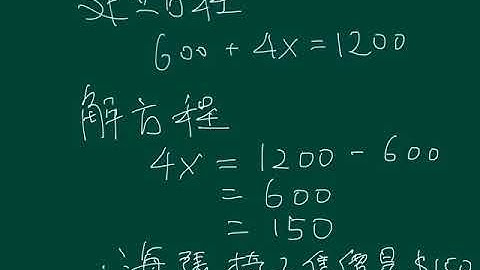 方程
600 + 4x = 1200
解方程
4x = 1200 - 600
= 600
= 150
∴海張椅子售價是$150